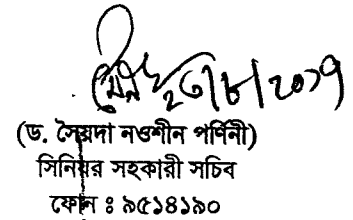 ২৩/৮/২০১৭
(ড. সৈয়দা নওশীন পর্ণিনী)
সিনিয়র সহকারী সচিব
ফোন ঃ ৯৫১৪১৯০